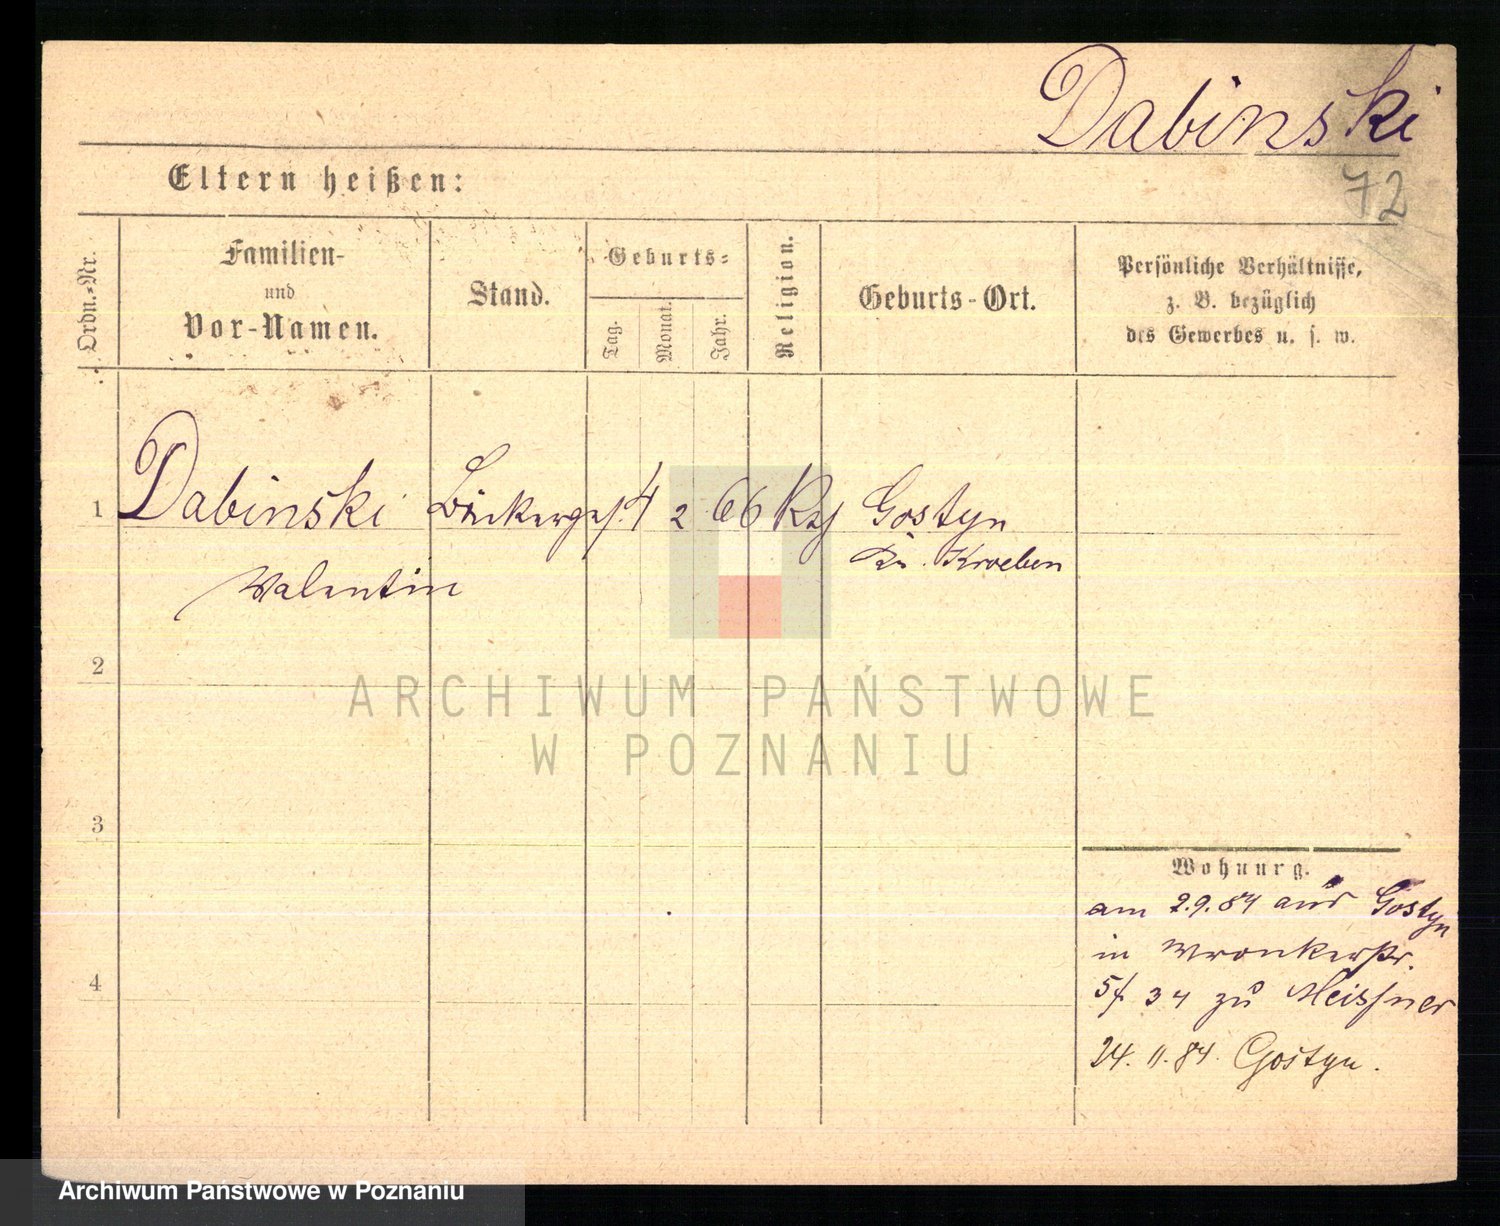 Dabinski
72
Eltern heißen:
Ordn.-Nr.
Familien-
und
Vor-Namen.
Stand.
Geburts-
Tag.
Monat.
Jahr.
Religion.
Geburts-Ort.
Persönliche Verhältnisse,
z. B. bezüglich
des Gewerbes u. s. w.
1 Dabinski Bäckerges. 4 2 66 Gostyn
Valentin Kr. Kroeben
2
3
4
Wohnung.
am 2.9.84 aus Gostyn
in Wronkerstr.
34 zu Meissner
24. 11. 84. Gostyn.
ARCHIWUM PAŃSTWOWE
W POZNANIU
Archiwum Państwowe w Poznaniu